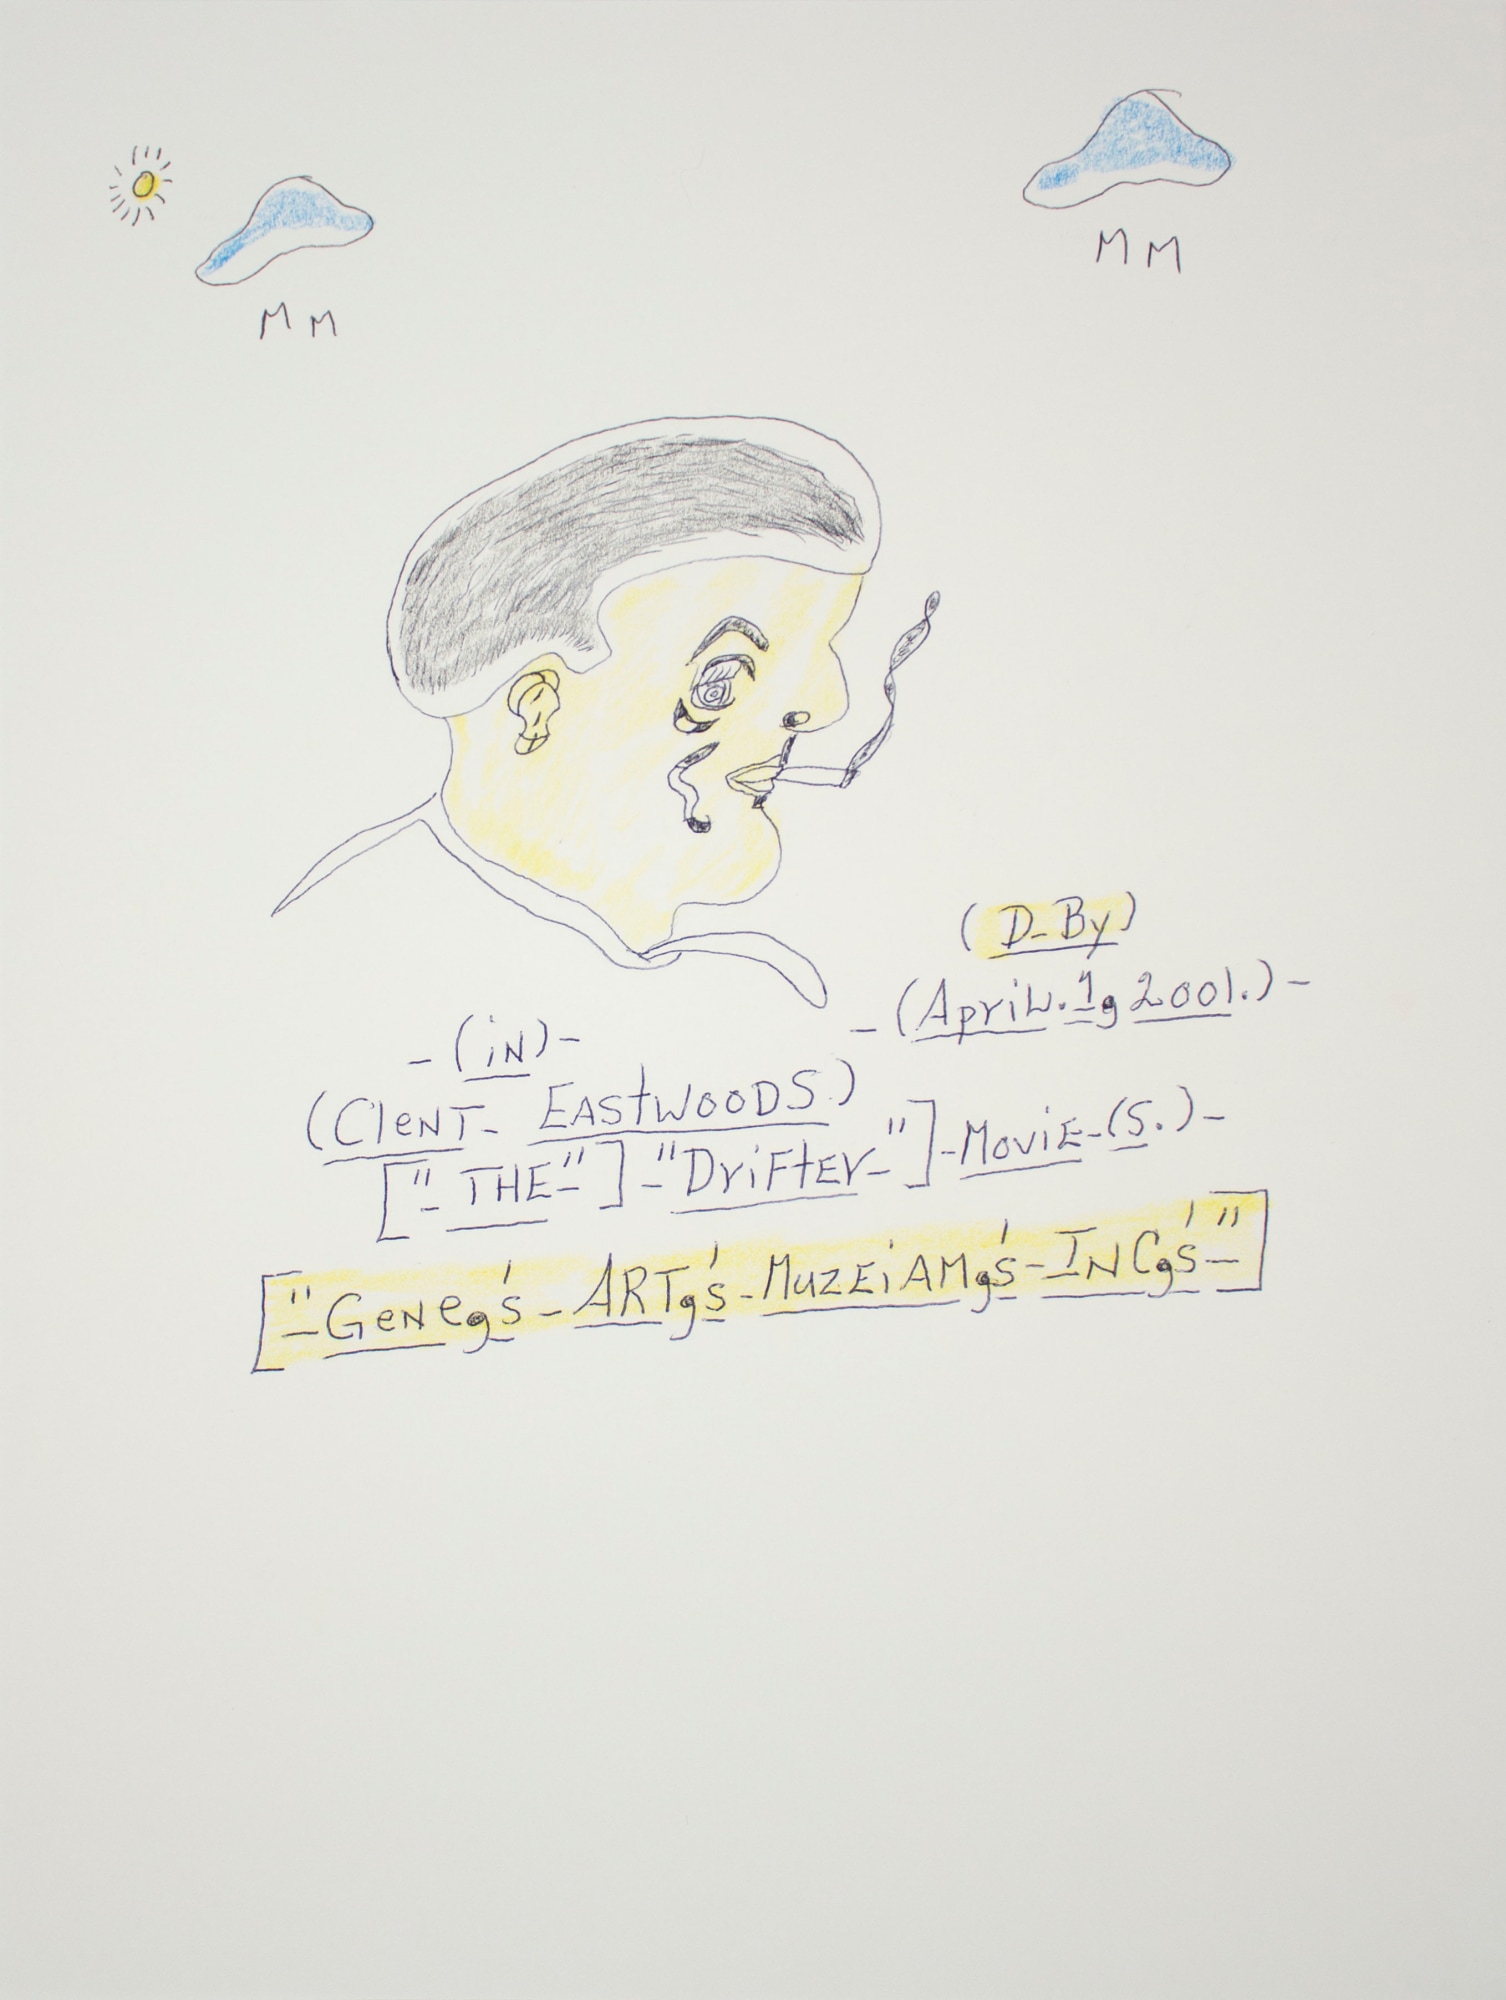 M M
M M
(D-By)
-(April.1, 2001.)-
-(iN)-
(ClENT- EAStWOODS.)
["- THE-"]-"DriFtEr-"]-MoViE-(S.)-
["-GENE,'s-ART,'s-MuZEiAM,'s-INC,'s-"]